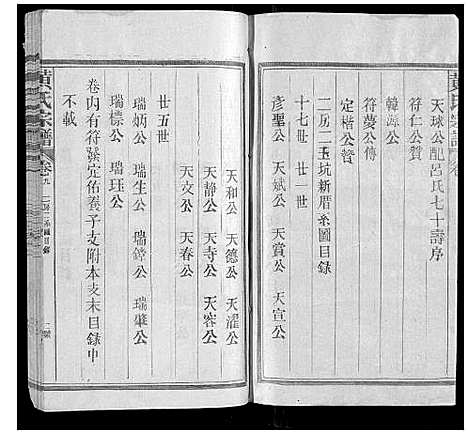 黃氏宗譜
天球公配呂氏七十壽序
符仁公贊
韓源公
符夢公傳
定楷公贊
二房二玉坑新厝系圖目錄
十七世 廿一世
彥聖公 天斌公 天賞公 天宣公
天和公 天德公 天濯公
天靜公 天寺公 天容公
天交公 天春公
廿五世
瑞舫公 瑞生公 瑞鐘公 瑞肇公
瑞標公 瑞珏公
卷內有符發定佑養子支附本支末目錄中
不載
黃氏宗譜 卷九